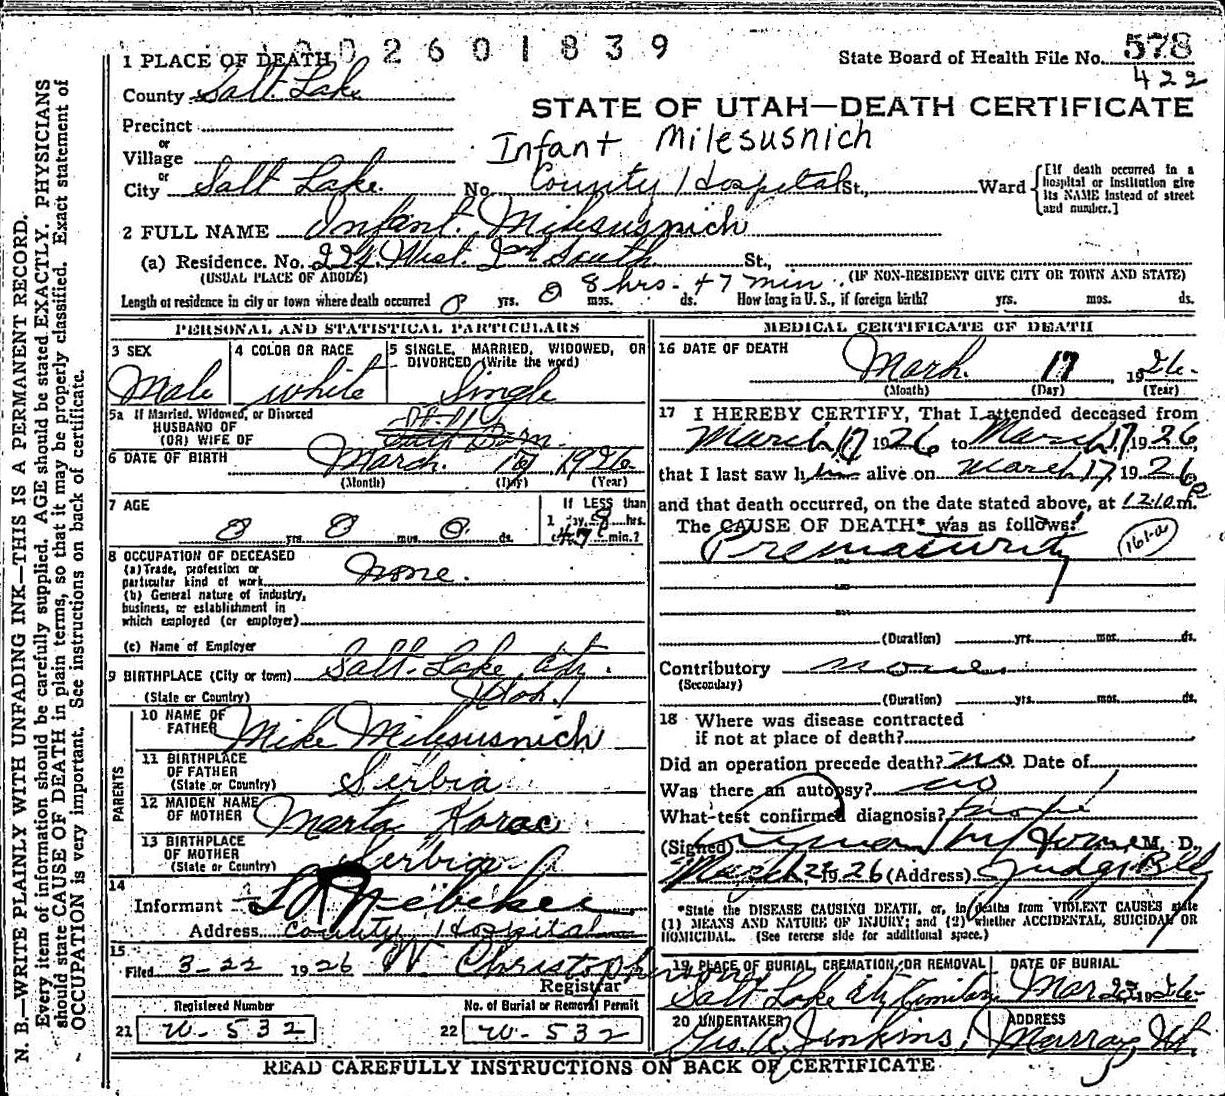 N. B.—WRITE PLAINLY WITH UNFADING INK—THIS IS A PERMANENT RECORD.
Every item of information should be carefully supplied. AGE should be stated EXACTLY. PHYSICIANS
should state CAUSE OF DEATH in plain terms, so that it may be properly classified. Exact statement of
OCCUPATION is very important. See instructions on back of certificate.
002601839
State Board of Health File No. 578
422
1 PLACE OF DEATH
County Salt Lake
STATE OF UTAH—DEATH CERTIFICATE
Precinct
or
Village
Infant Milesusnich
or
City Salt Lake No. County Hospital St., Ward
[If death occurred in a
hospital or institution give
its NAME instead of street
and number.]
2 FULL NAME Infant Milesusnich
(a) Residence. No. 224 West 2nd South St.,
(USUAL PLACE OF ABODE) (IF NON-RESIDENT GIVE CITY OR TOWN AND STATE)
8 hrs. 47 min.
Length of residence in city or town where death occurred 0 yrs. 0 mos. ds. How long in U.S., if foreign birth? yrs. mos. ds.
PERSONAL AND STATISTICAL PARTICULARS
3 SEX 4 COLOR OR RACE 5 SINGLE, MARRIED, WIDOWED, OR
DIVORCED (Write the word)
Male white Single
5a If Married, Widowed, or Divorced
HUSBAND OF
(OR) WIFE OF
6 DATE OF BIRTH March 17 1926
(Month) (Day) (Year)
7 AGE If LESS than
0 yrs. 0 mos. 0 ds. 1 day, 8 hrs.
47 min.?
8 OCCUPATION OF DECEASED
(a) Trade, profession or
particular kind of work None.
(b) General nature of industry,
business, or establishment in
which employed (or employer)
(c) Name of Employer
9 BIRTHPLACE (City or town) Salt Lake City
(State or Country) Utah
PARENTS
10 NAME OF
FATHER Mike Milesusnich
11 BIRTHPLACE
OF FATHER
(State or Country) Serbia
12 MAIDEN NAME
OF MOTHER Marta Korac
13 BIRTHPLACE
OF MOTHER
(State or Country) Serbia
14
Informant Nebeker
Address County Hospital
15
Filed 3-22 1926 W Christopherson
Registrar
Registered Number No. of Burial or Removal Permit
21 W-532 22 W-532
MEDICAL CERTIFICATE OF DEATH
16 DATE OF DEATH March 17, 1926
(Month) (Day) (Year)
17 I HEREBY CERTIFY, That I attended deceased from
March 17 1926 to March 17, 1926
that I last saw him alive on March 17, 1926
and that death occurred, on the date stated above, at 12.10 p m.
The CAUSE OF DEATH* was as follows:
Prematurity 161-a
(Duration) yrs. mos. ds.
Contributory none
(Secondary)
(Duration) yrs. mos. ds.
18 Where was disease contracted
if not at place of death?
Did an operation precede death? no Date of
Was there an autopsy? no
What test confirmed diagnosis?
(Signed) Horne M. D.
March 1926 (Address) Judge Bldg
*State the DISEASE CAUSING DEATH, or, in deaths from VIOLENT CAUSES state
(1) MEANS AND NATURE OF INJURY; and (2) whether ACCIDENTAL, SUICIDAL OR
HOMICIDAL. (See reverse side for additional space.)
19 PLACE OF BURIAL, CREMATION, OR REMOVAL DATE OF BURIAL
Salt Lake City Cemetery Mar 1926
20 UNDERTAKER ADDRESS
Jenkins Murray, Ut.
READ CAREFULLY INSTRUCTIONS ON BACK OF CERTIFICATE